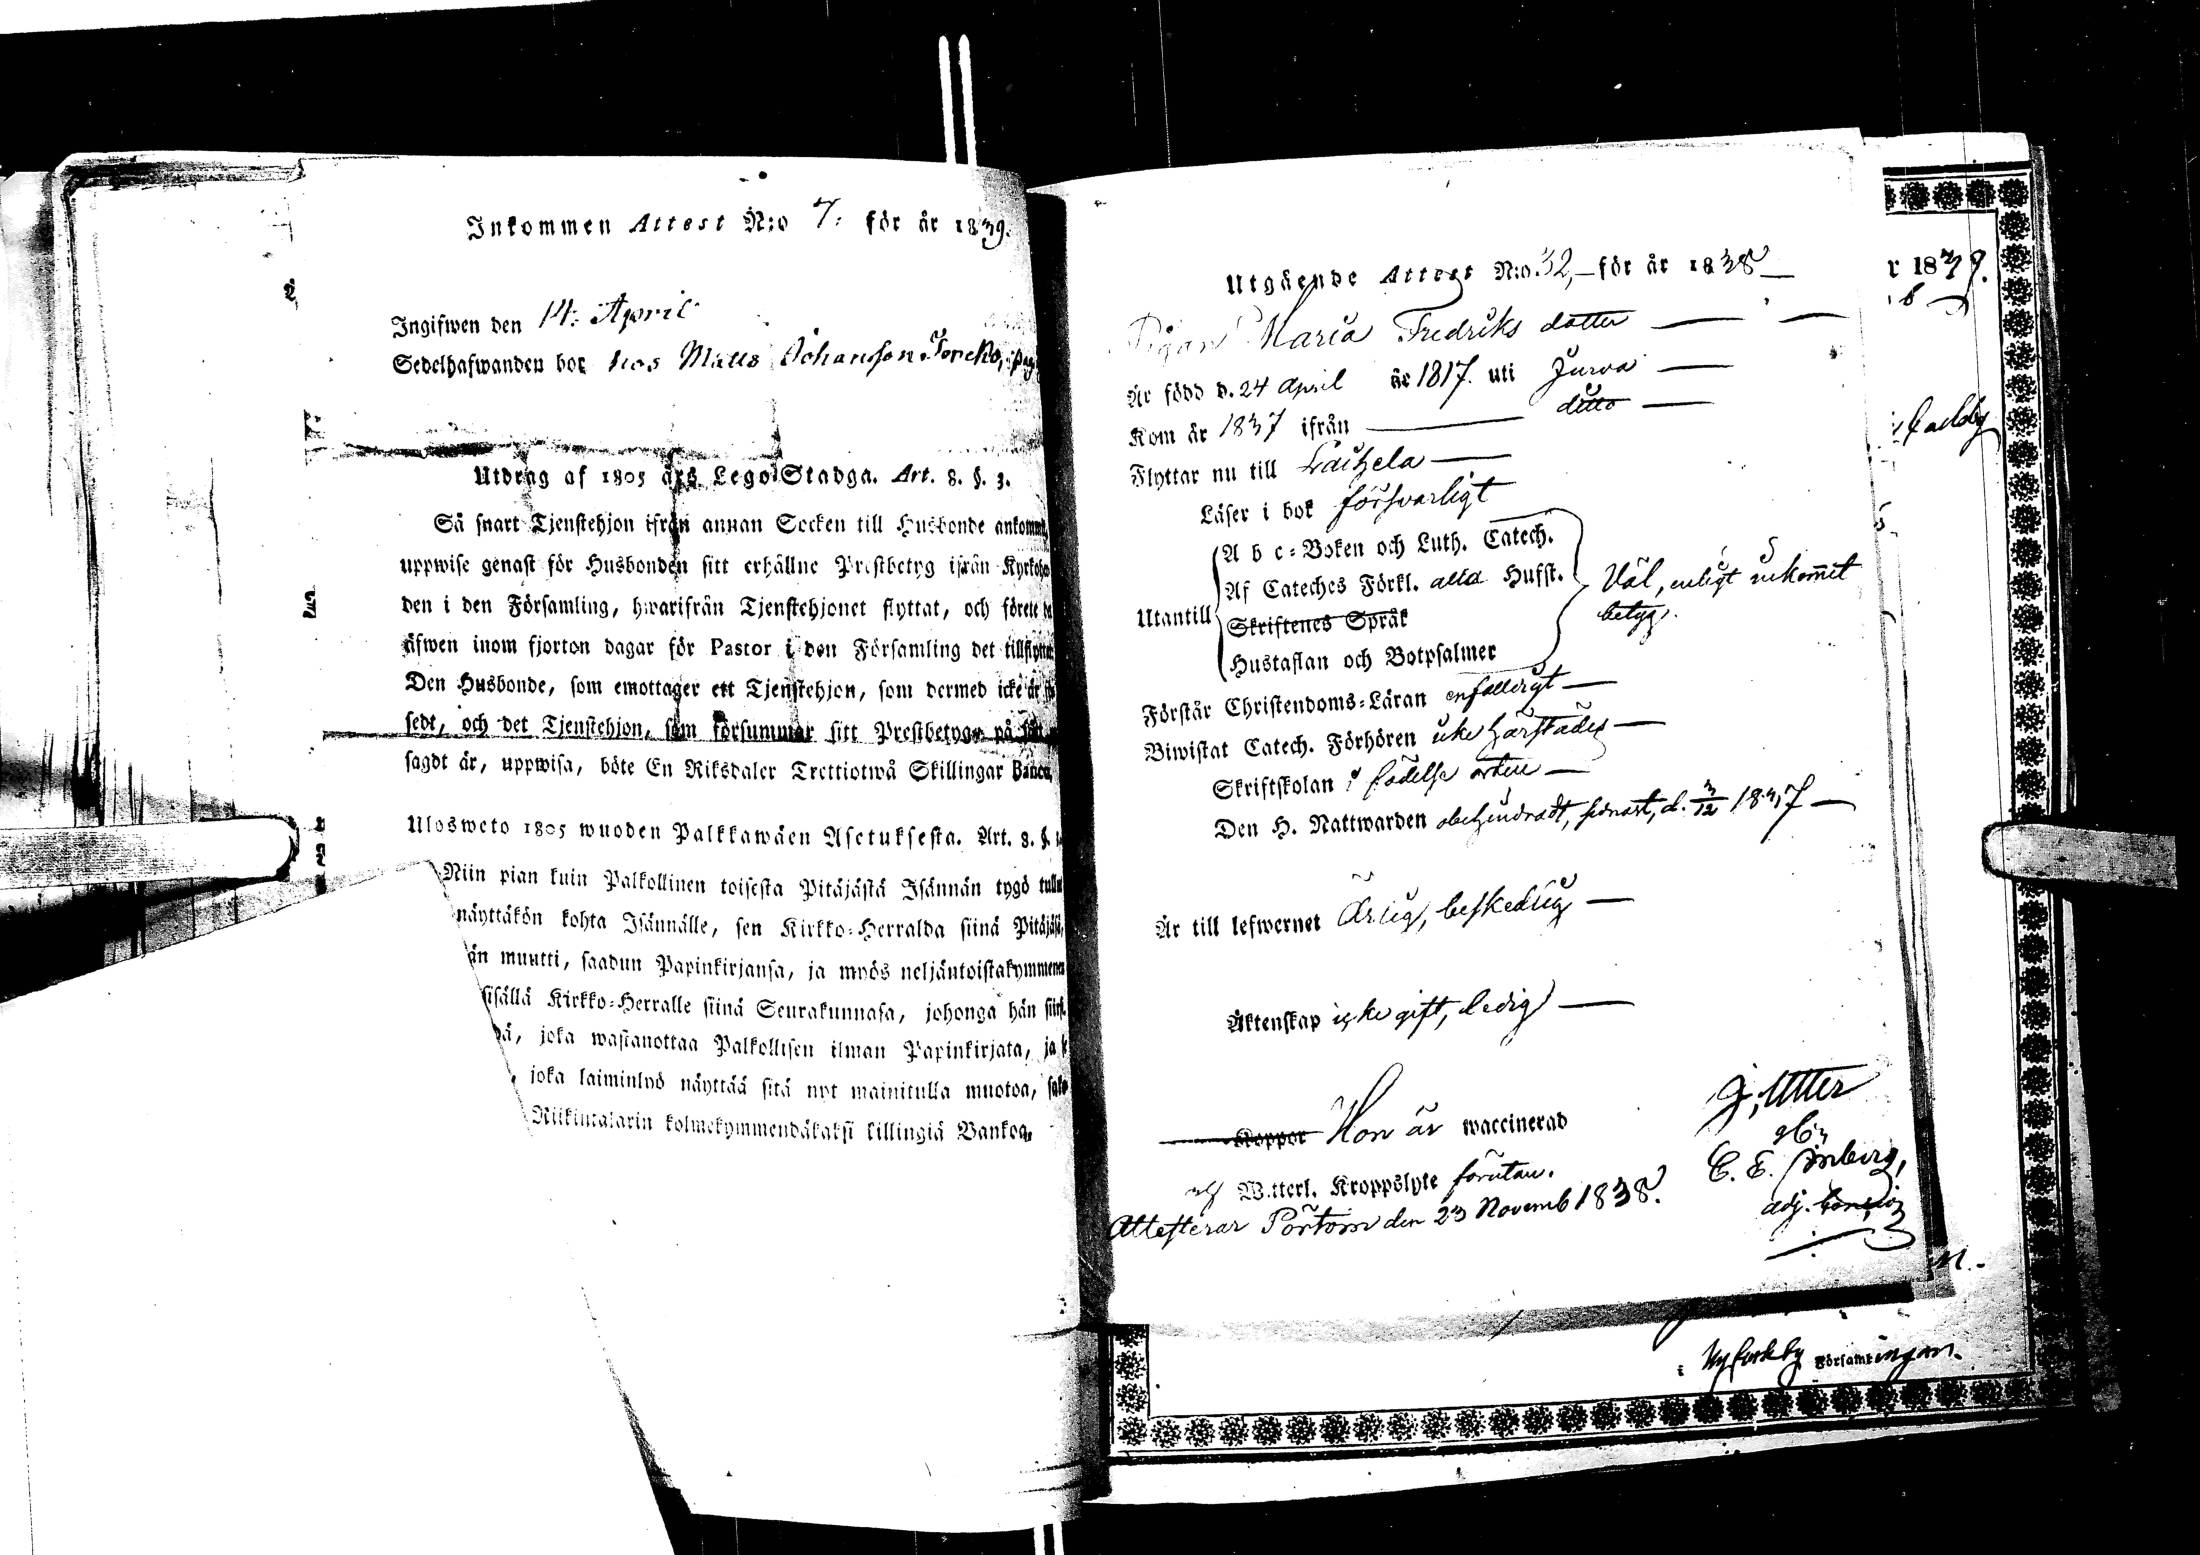 Inkommen Attest N:o 7: för år 1839.
Ingifwen den 14: April
Sedelhafwanden bor hos Matts Johansson
Utdrag af 1805 års Lego-Stadga. Art. 8. §. 3.
Så snart Tjenstehjon ifrån annan Socken till Husbonde ankommit,
uppwise genast för Husbonden sitt erhållne Prestbetyg ifrån
den i den Församling, hwarifrån Tjenstehjonet flyttat, och förete
äfwen inom fjorton dagar för Pastor i den Församling det
Den Husbonde, som emottager ett Tjenstehjon, som dermed icke är
sedt, och det Tjenstehjon, som försummar sitt Prestbetyg, på
sagdt är, uppwisa, böte En Riksdaler Trettiotwå Skillingar Banco.
Ulosweto 1805 wuoden Palkkawäen Asetuksesta. Art. 8. §.
Niin pian kuin Palkollinen toisesta Pitäjästä Isännän tygö
näyttäkön kohta Isännälle, sen Kirkko-Herralda siinä
än muutti, saadun Papinkirjansa, ja myös neljäntoistakymmenen
sisällä Kirkko-Herralle siinä Seurakunnasa, johonga hän
ä, joka wastanottaa Palkollisen ilman Papinkirjata, ja
, joka laiminlyö näyttää sitä nyt mainitulla muotoa,
Riikintalarin kolmekymmendäkaksi killingiä Bankoa.
Utgående Attest N:o 32, för år 1838
Pigan Maria Fredriks dotter
Är född d. 24 April år 1817. uti Jurva
Kom år 1837 ifrån ditto
Flyttar nu till Laihela
Läser i bok försvarligt
A b c-Boken och Luth. Catech.
Af Cateches Förkl. alla Hufst.
Utantill Skriftenes Språk
Hustaflan och Botpsalmer
Väl, enligt inkommit
betyg.
Förstår Christendoms-Läran enfalligt
Biwistat Catech. Förhören icke härstädes
Skriftskolan i födelse orten
Den H. Nattwarden obehindradt, senast, d. 3/12 1837
Är till lefwernet Ärlig, beskedlig
Äktenskap icke gift, ledig
Koppor Hon är waccinerad
Witterl. Kroppslyte förutan.
Attesterar Pörtom den 23 Novemb 1838.
J. Utter
C. E.
adj.
r 1839.
i Nykarleby Församlingen.